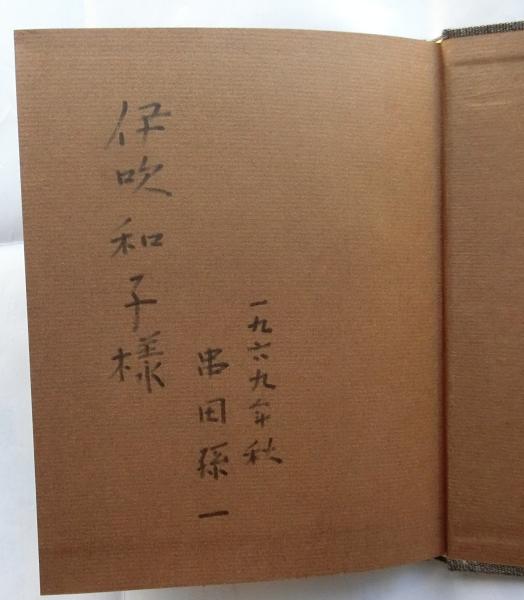 伊吹和子様
一九六九年秋
串田孫一